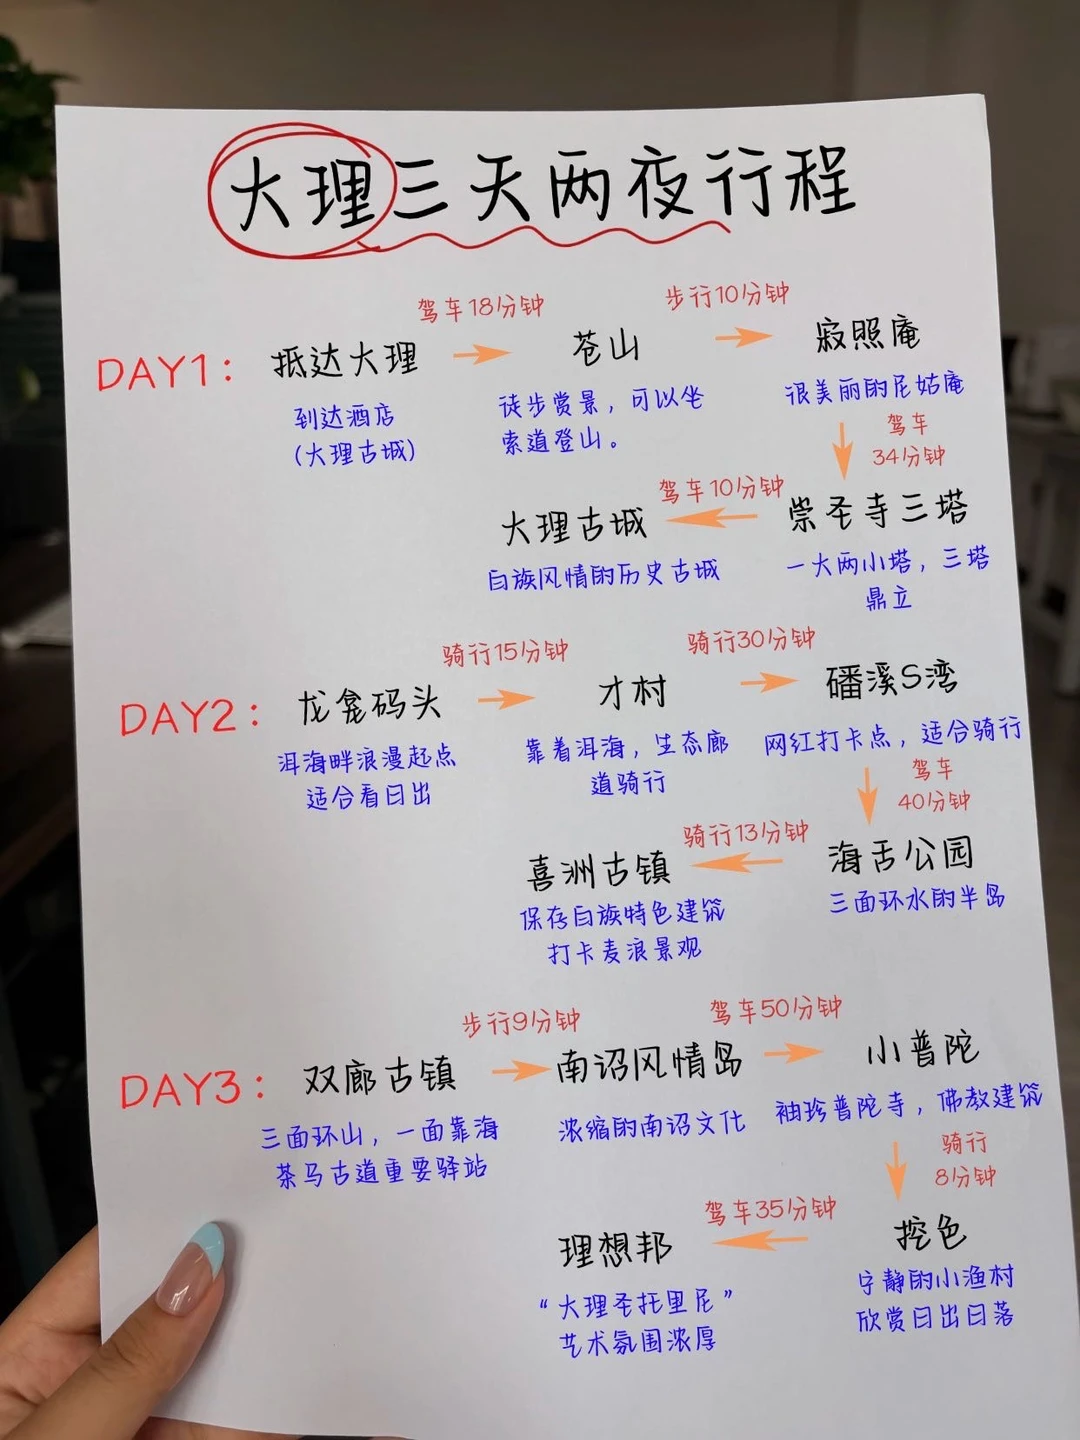 大理三天两夜行程
驾车18分钟
步行10分钟
DAY1：
抵达大理
苍山
寂照庵
到达酒店
(大理古城)
徒步赏景，可以坐
索道登山。
很美丽的尼姑庵
驾车
34分钟
驾车10分钟
大理古城
崇圣寺三塔
白族风情的历史古城
一大两小塔，三塔
鼎立
骑行15分钟
骑行30分钟
DAY2：
龙龛码头
才村
磻溪S湾
洱海畔浪漫起点
适合看日出
靠着洱海，生态廊
道骑行
网红打卡点，适合骑行
驾车
40分钟
骑行13分钟
喜洲古镇
海舌公园
保存白族特色建筑
打卡麦浪景观
三面环水的半岛
步行9分钟
驾车50分钟
DAY3：
双廊古镇
南诏风情岛
小普陀
三面环山，一面靠海
茶马古道重要驿站
浓缩的南诏文化
袖珍普陀寺，佛教建筑
骑行
8分钟
驾车35分钟
理想邦
挖色
“大理圣托里尼”
艺术氛围浓厚
宁静的小渔村
欣赏日出日落